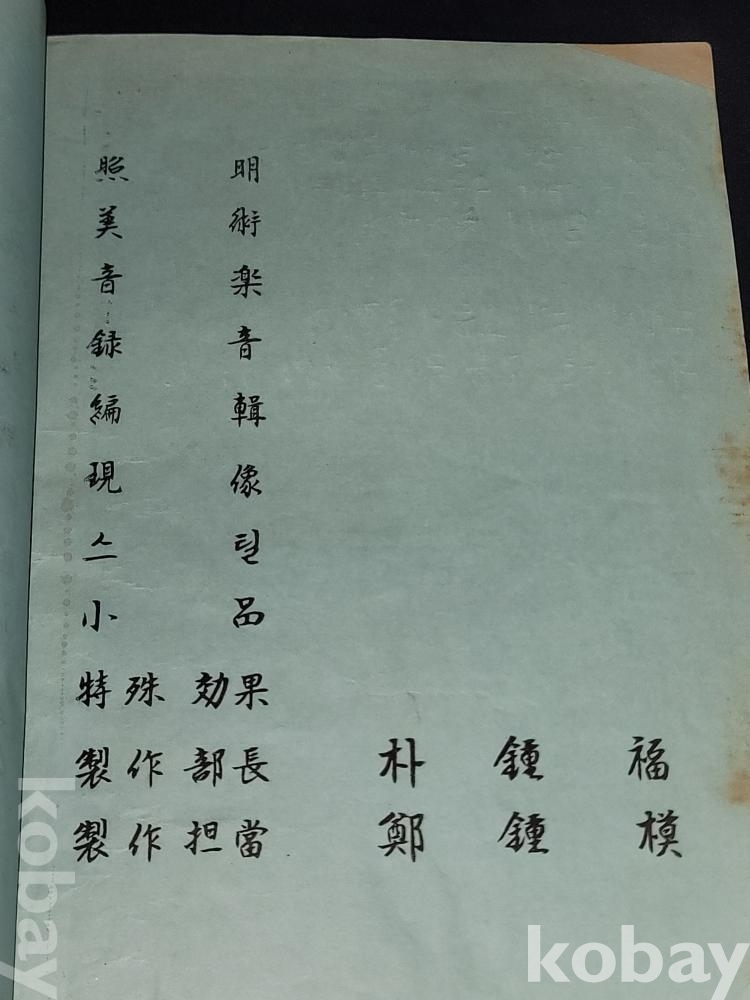 照 明
美 術
音 楽
録 音
編 輯
現 像
스 틸
小 品
特殊効果
製作部長 朴 鍾 福
製作担當 鄭 鍾 模
kobay
kobay